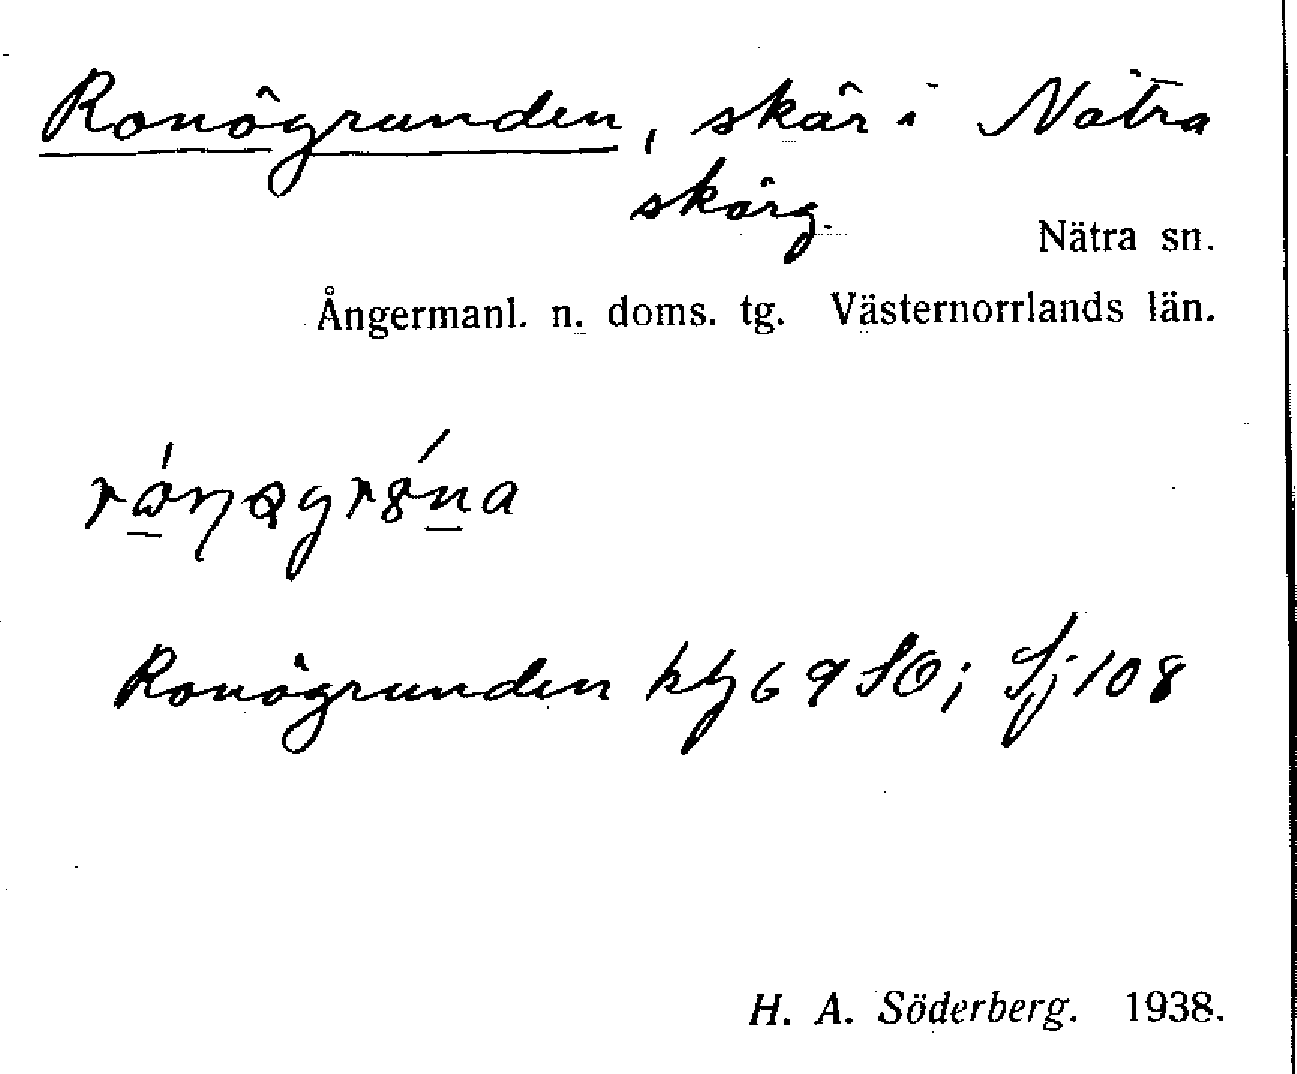 Ronögrunden, skär i Nätra
skärg.
Nätra sn.
Ångermanl. n. doms. tg. Västernorrlands län.
Ronögrunden ktz 69 SO; Sj 108
H. A. Söderberg. 1938.